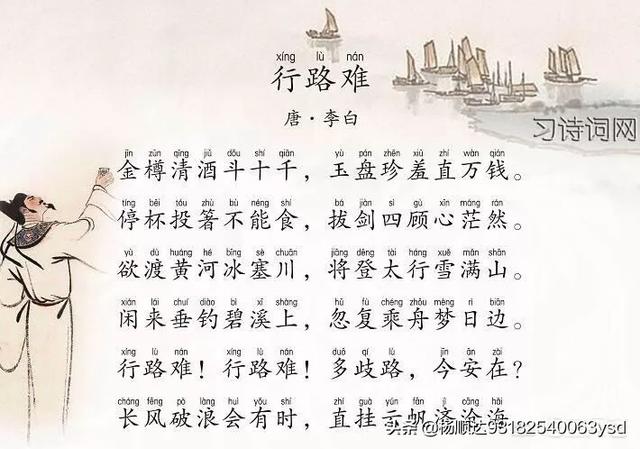 xíng lù nán
行路难
唐·李白
习诗词网
jīn zūn qīng jiǔ dǒu shí qiān yù pán zhēn xiū zhí wàn qián
金樽清酒斗十千，玉盘珍羞直万钱。
tíng bēi tóu zhù bù néng shí bá jiàn sì gù xīn máng rán
停杯投箸不能食，拔剑四顾心茫然。
yù dù huáng hé bīng sè chuān jiāng dēng tài háng xuě mǎn shān
欲渡黄河冰塞川，将登太行雪满山。
xián lái chuí diào bì xī shàng hū fù chéng zhōu mèng rì biān
闲来垂钓碧溪上，忽复乘舟梦日边。
xíng lù nán xíng lù nán duō qí lù jīn ān zài
行路难！行路难！多歧路，今安在？
cháng fēng pò làng huì yǒu shí zhí guà yún fān jì cāng hǎi
长风破浪会有时，直挂云帆济沧海
头条@杨顺达93182540063ysd